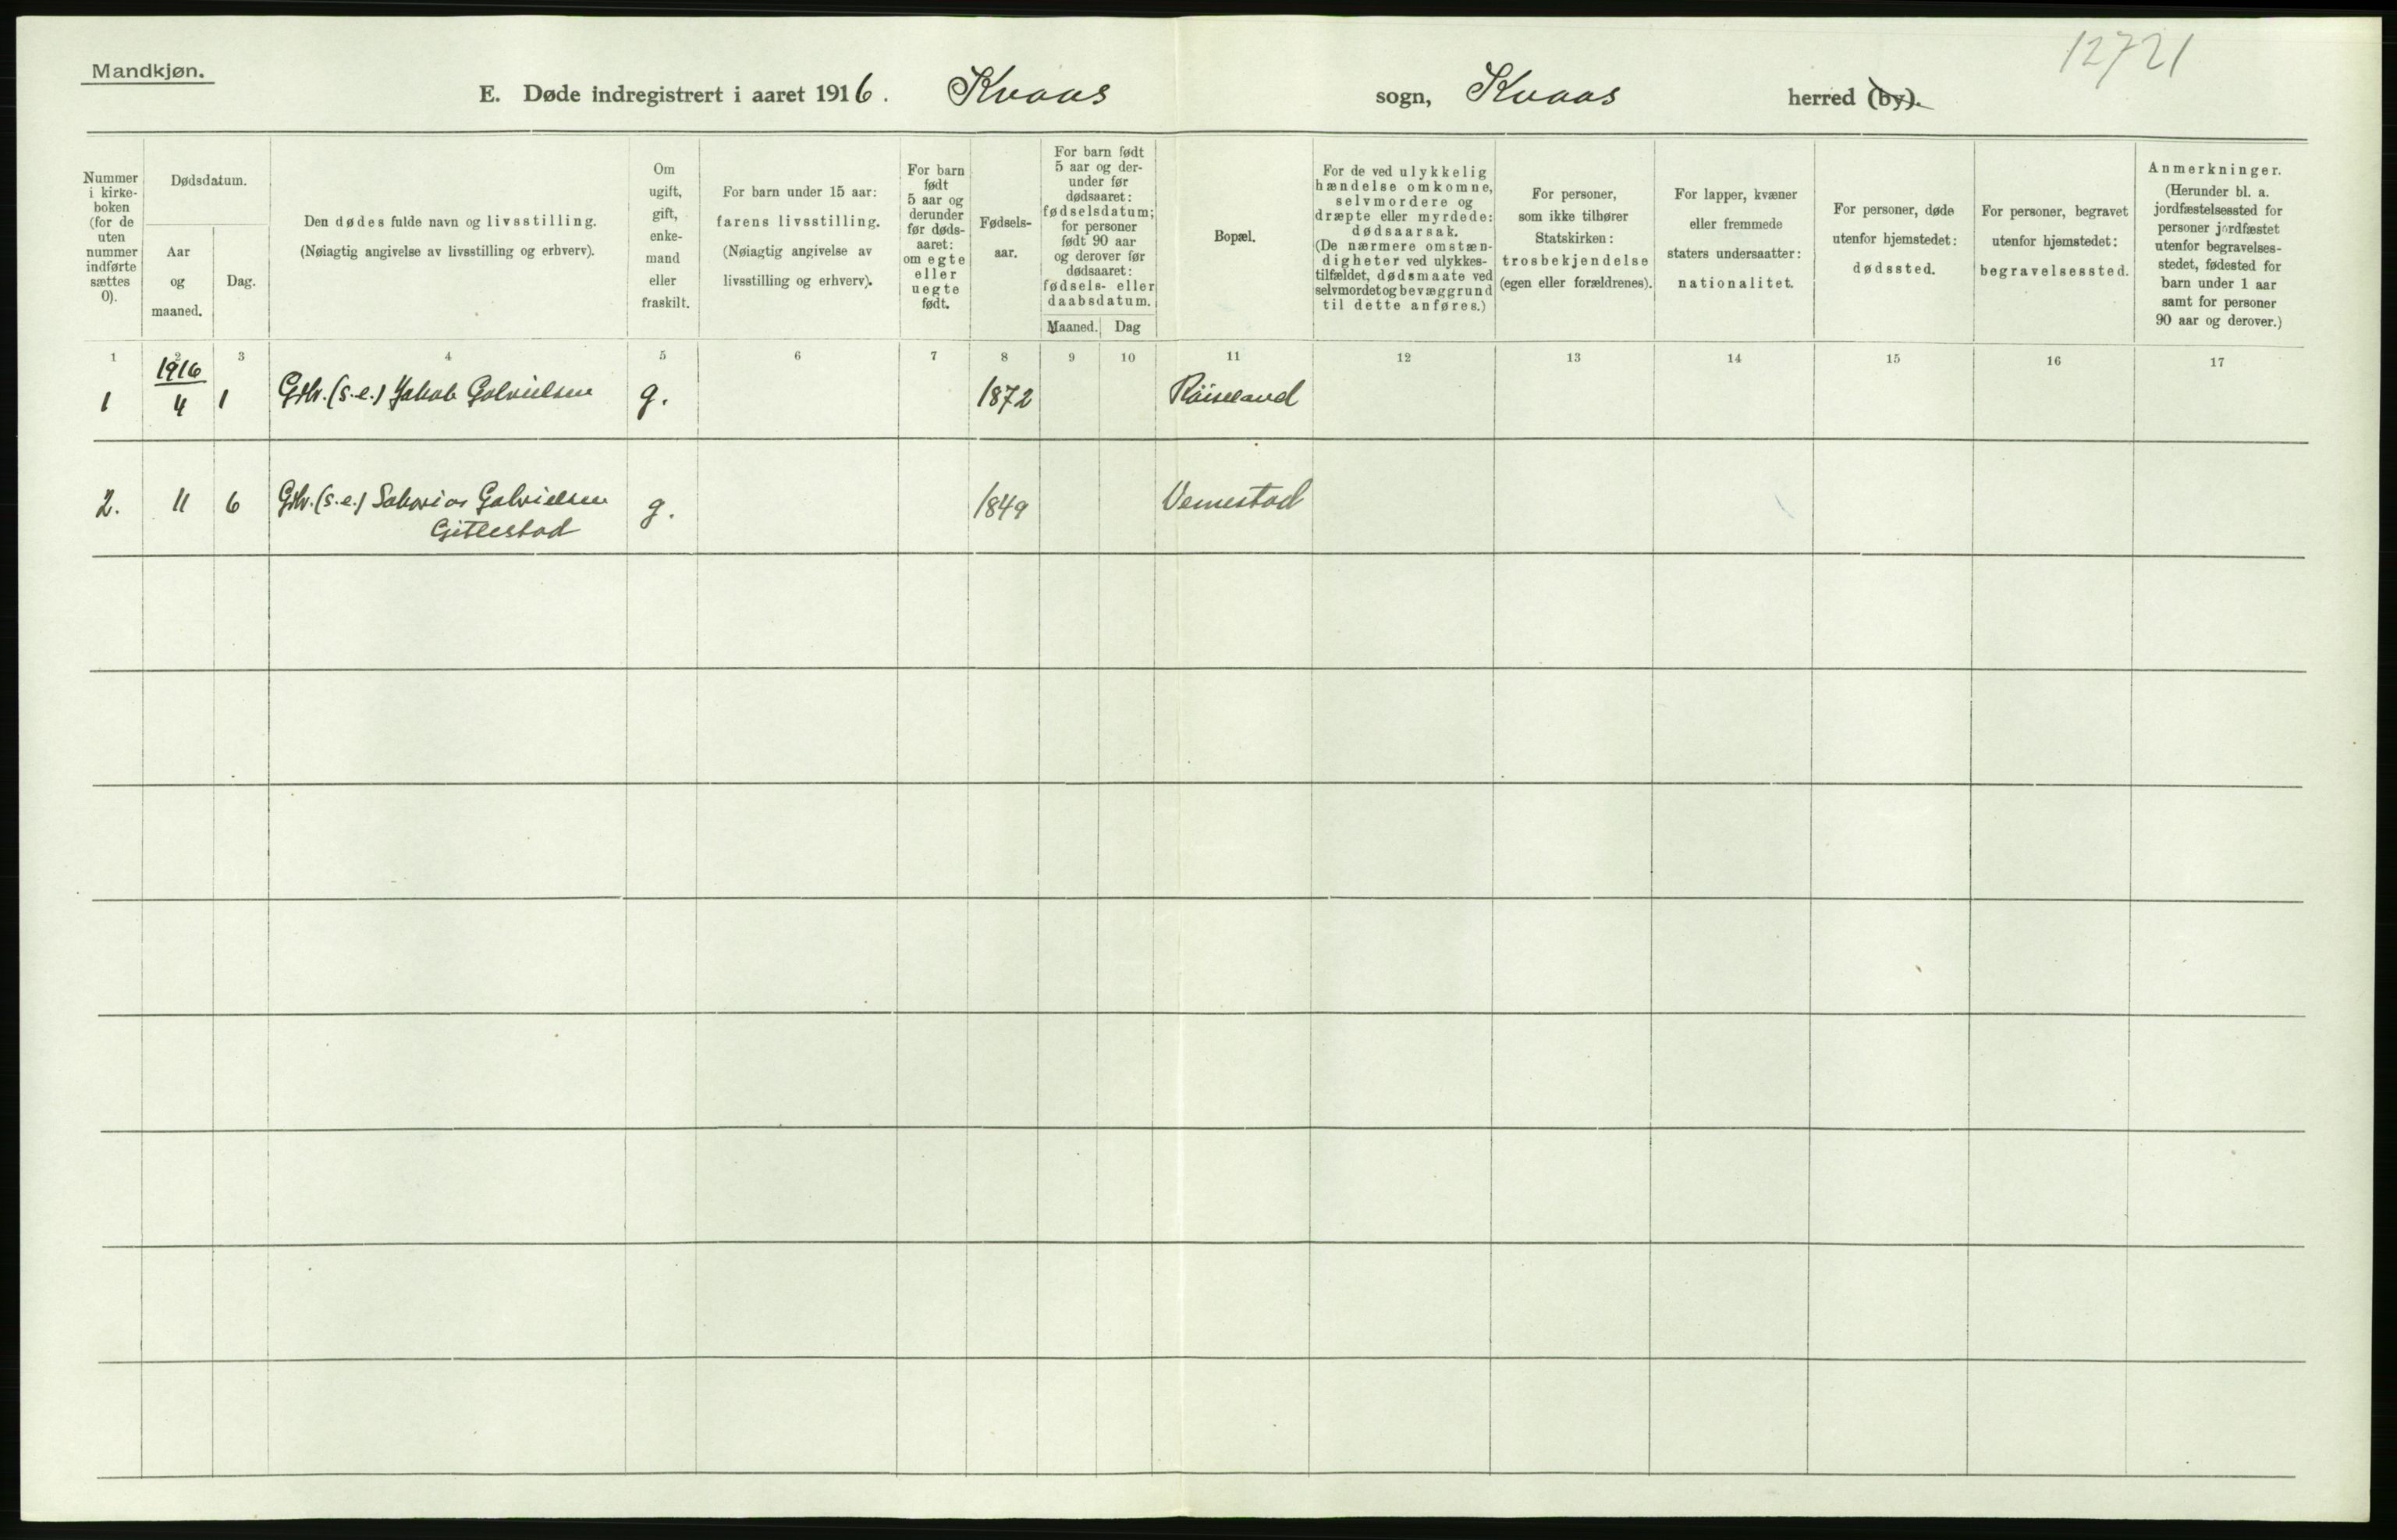 12721
Mandkjøn.
E. Døde indregistrert i aaret 1916. Kvaas sogn, Kvaas herred (by).
Nummer
i kirke-
boken
(for de
uten
nummer
indførte
sættes
0).
Dødsdatum.
Aar
og
maaned.
Dag.
Den dødes fulde navn og livsstilling.
(Nøiagtig angivelse av livsstilling og erhverv).
Om
ugift,
gift,
enke-
mand
eller
fraskilt.
For barn under 15 aar:
farens livsstilling.
(Nøiagtig angivelse av
livsstilling og erhverv).
For barn
født
5 aar og
derunder
før døds-
aaret:
om egte
eller
uegte
født.
Fødsels-
aar.
For barn født
5 aar og der-
under før
dødsaaret:
fødselsdatum;
for personer
født 90 aar
og derover før
dødsaaret:
fødsels- eller
daabsdatum.
Maaned. Dag
Bopæl.
For de ved ulykkelig
hændelse omkomne,
selvmordere og
dræpte eller myrdede:
dødsaarsak.
(De nærmere omstæn-
digheter ved ulykkes-
tilfældet, dødsmaate ved
selvmordet og bevæggrund
til dette anføres.)
For personer,
som ikke tilhører
Statskirken:
trosbekjendelse
(egen eller forældrenes).
For lapper, kvæner
eller fremmede
staters undersaatter:
nationalitet.
For personer, døde
utenfor hjemstedet:
dødssted.
For personer, begravet
utenfor hjemstedet:
begravelsessted.
Anmerkninger.
(Herunder bl. a.
jordfæstelsessted for
personer jordfæstet
utenfor begravelses-
stedet, fødested for
barn under 1 aar
samt for personer
90 aar og derover.)
1 2 3 4 5 6 7 8 9 10 11 12 13 14 15 16 17
1916
1 4 1 Grbr. (s.e.) Jakob Gabrielsen g. 1872 Röiseland
2. 11 6 Grbr. (s.e.) Sakarias Gabrielsen g. 1849 Vemestad
Gitlestad